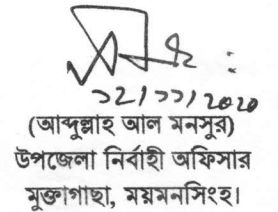 ১২/১১/২০২০
(আব্দুল্লাহ আল মনসুর)
উপজেলা নির্বাহী অফিসার
মুক্তাগাছা, ময়মনসিংহ।